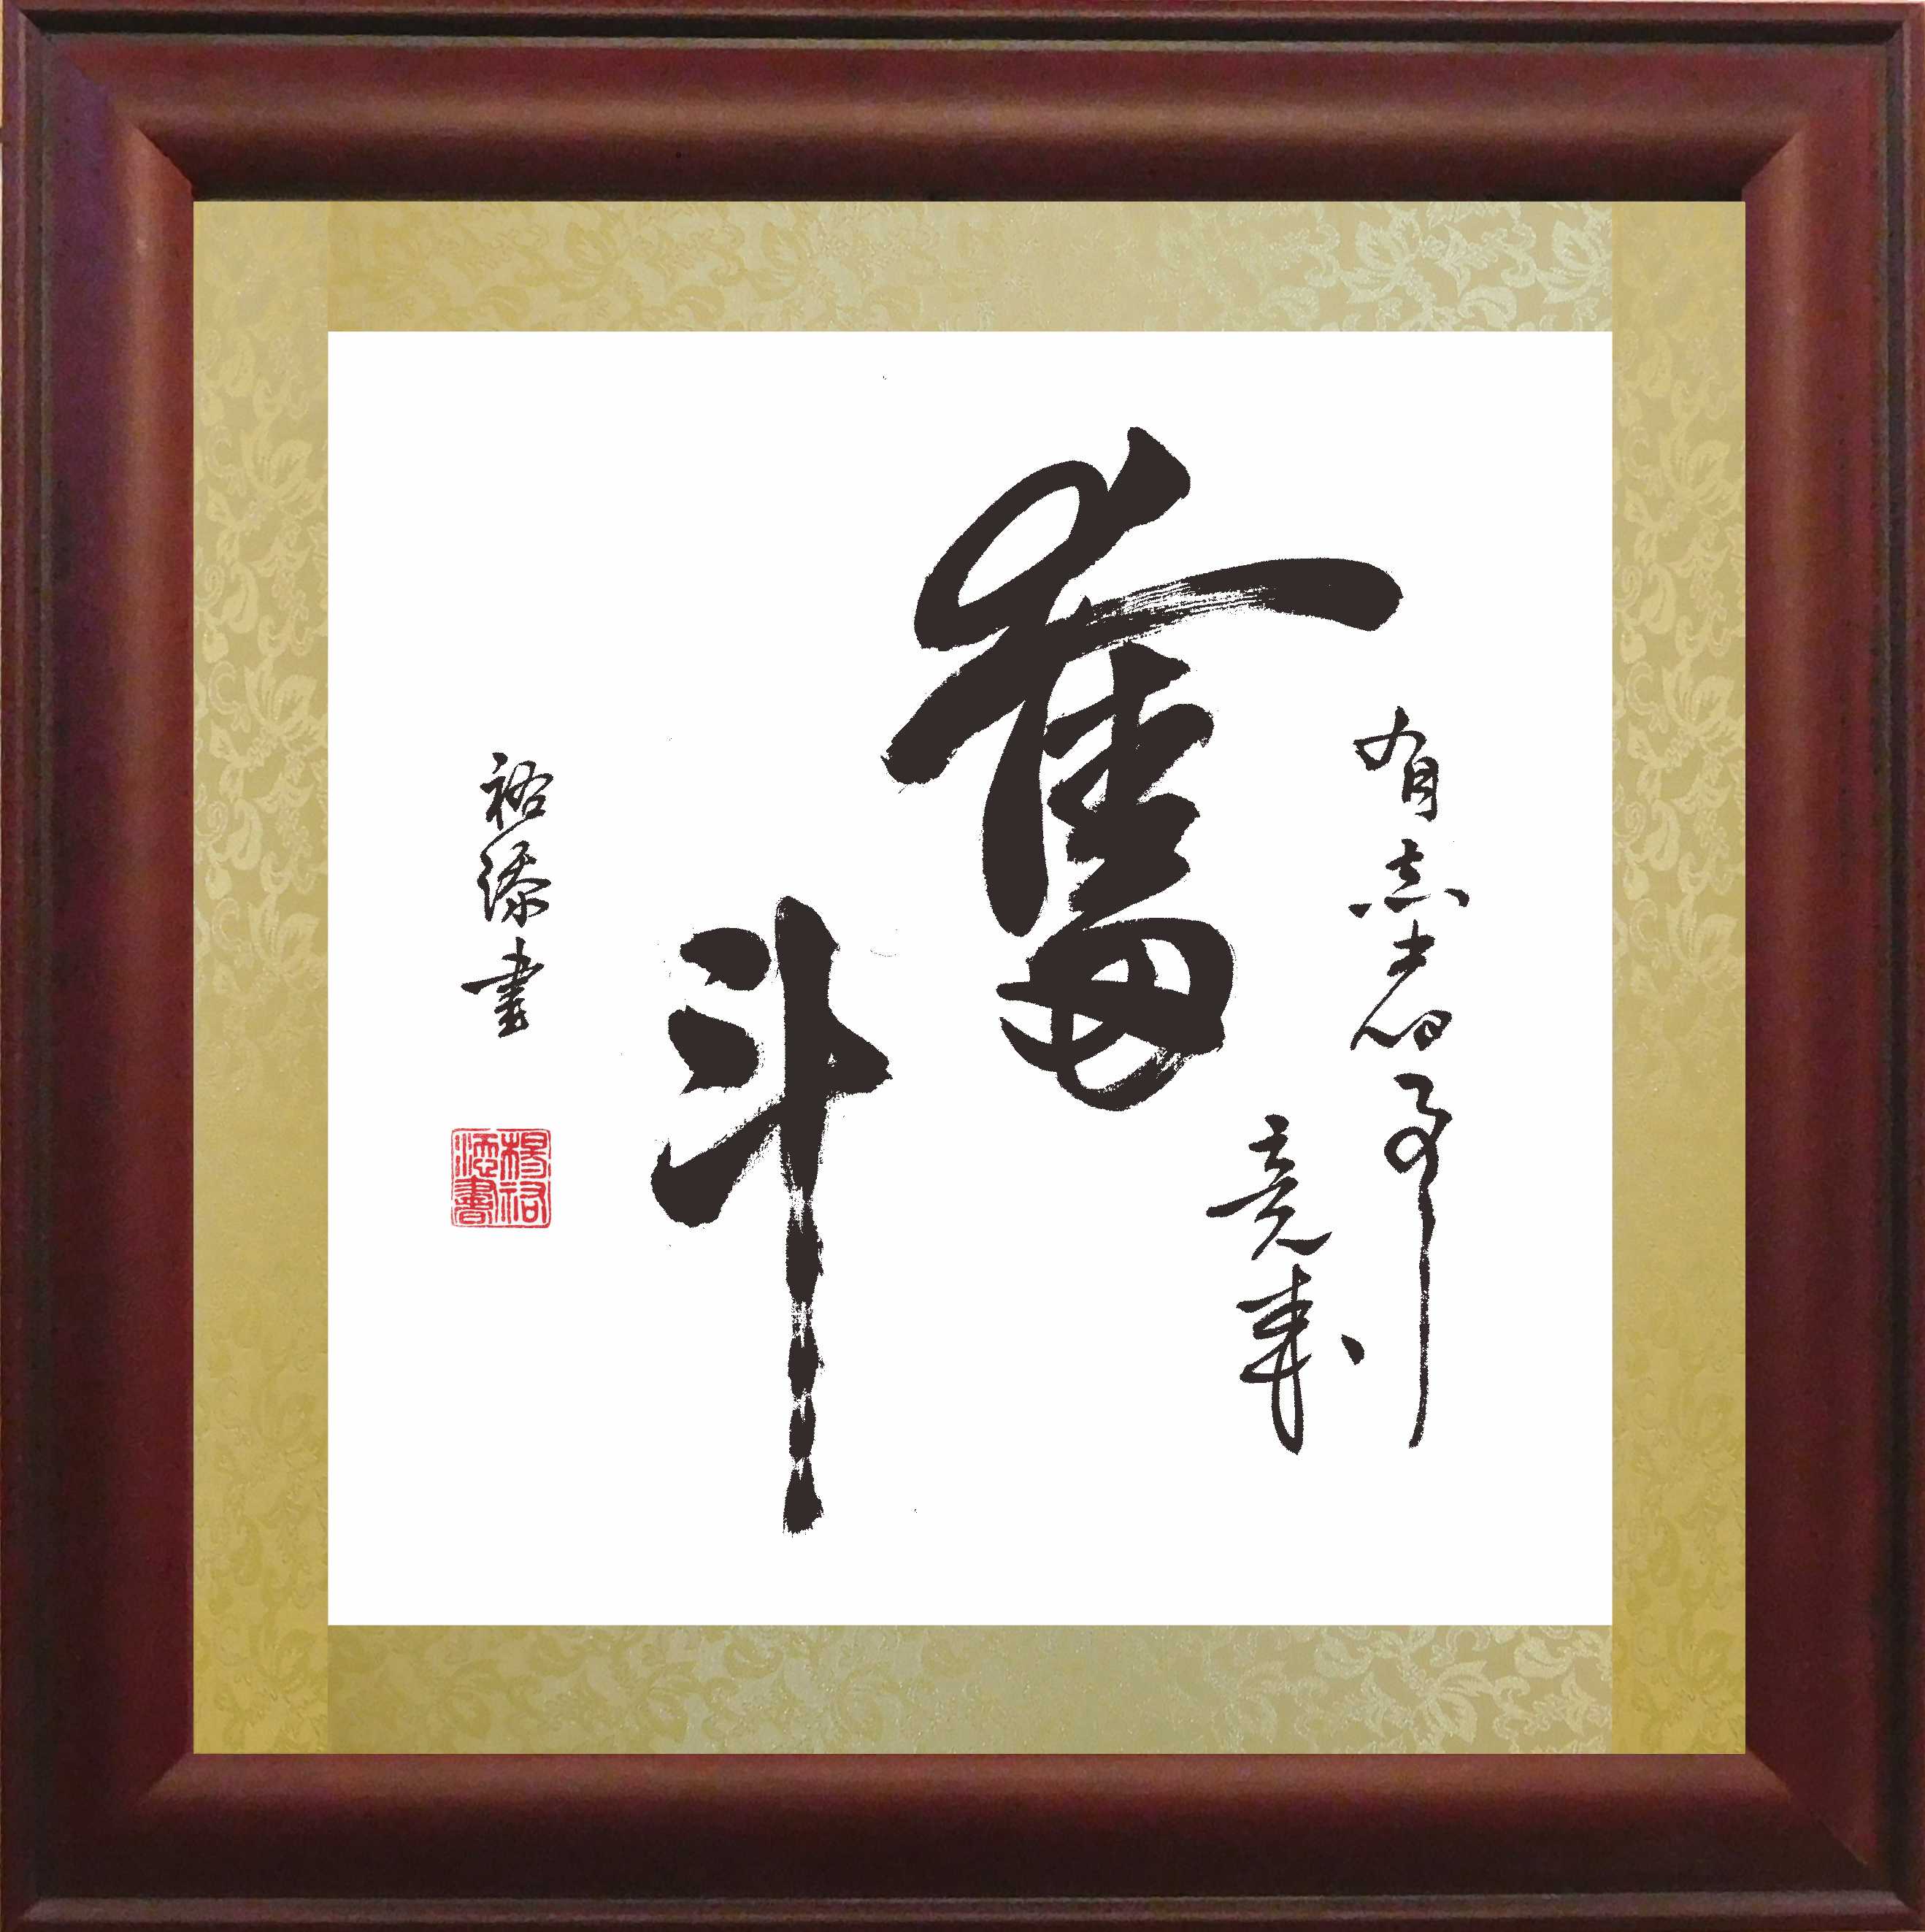 有志者事
竟成
奮
斗
裕添書
楊裕
添書